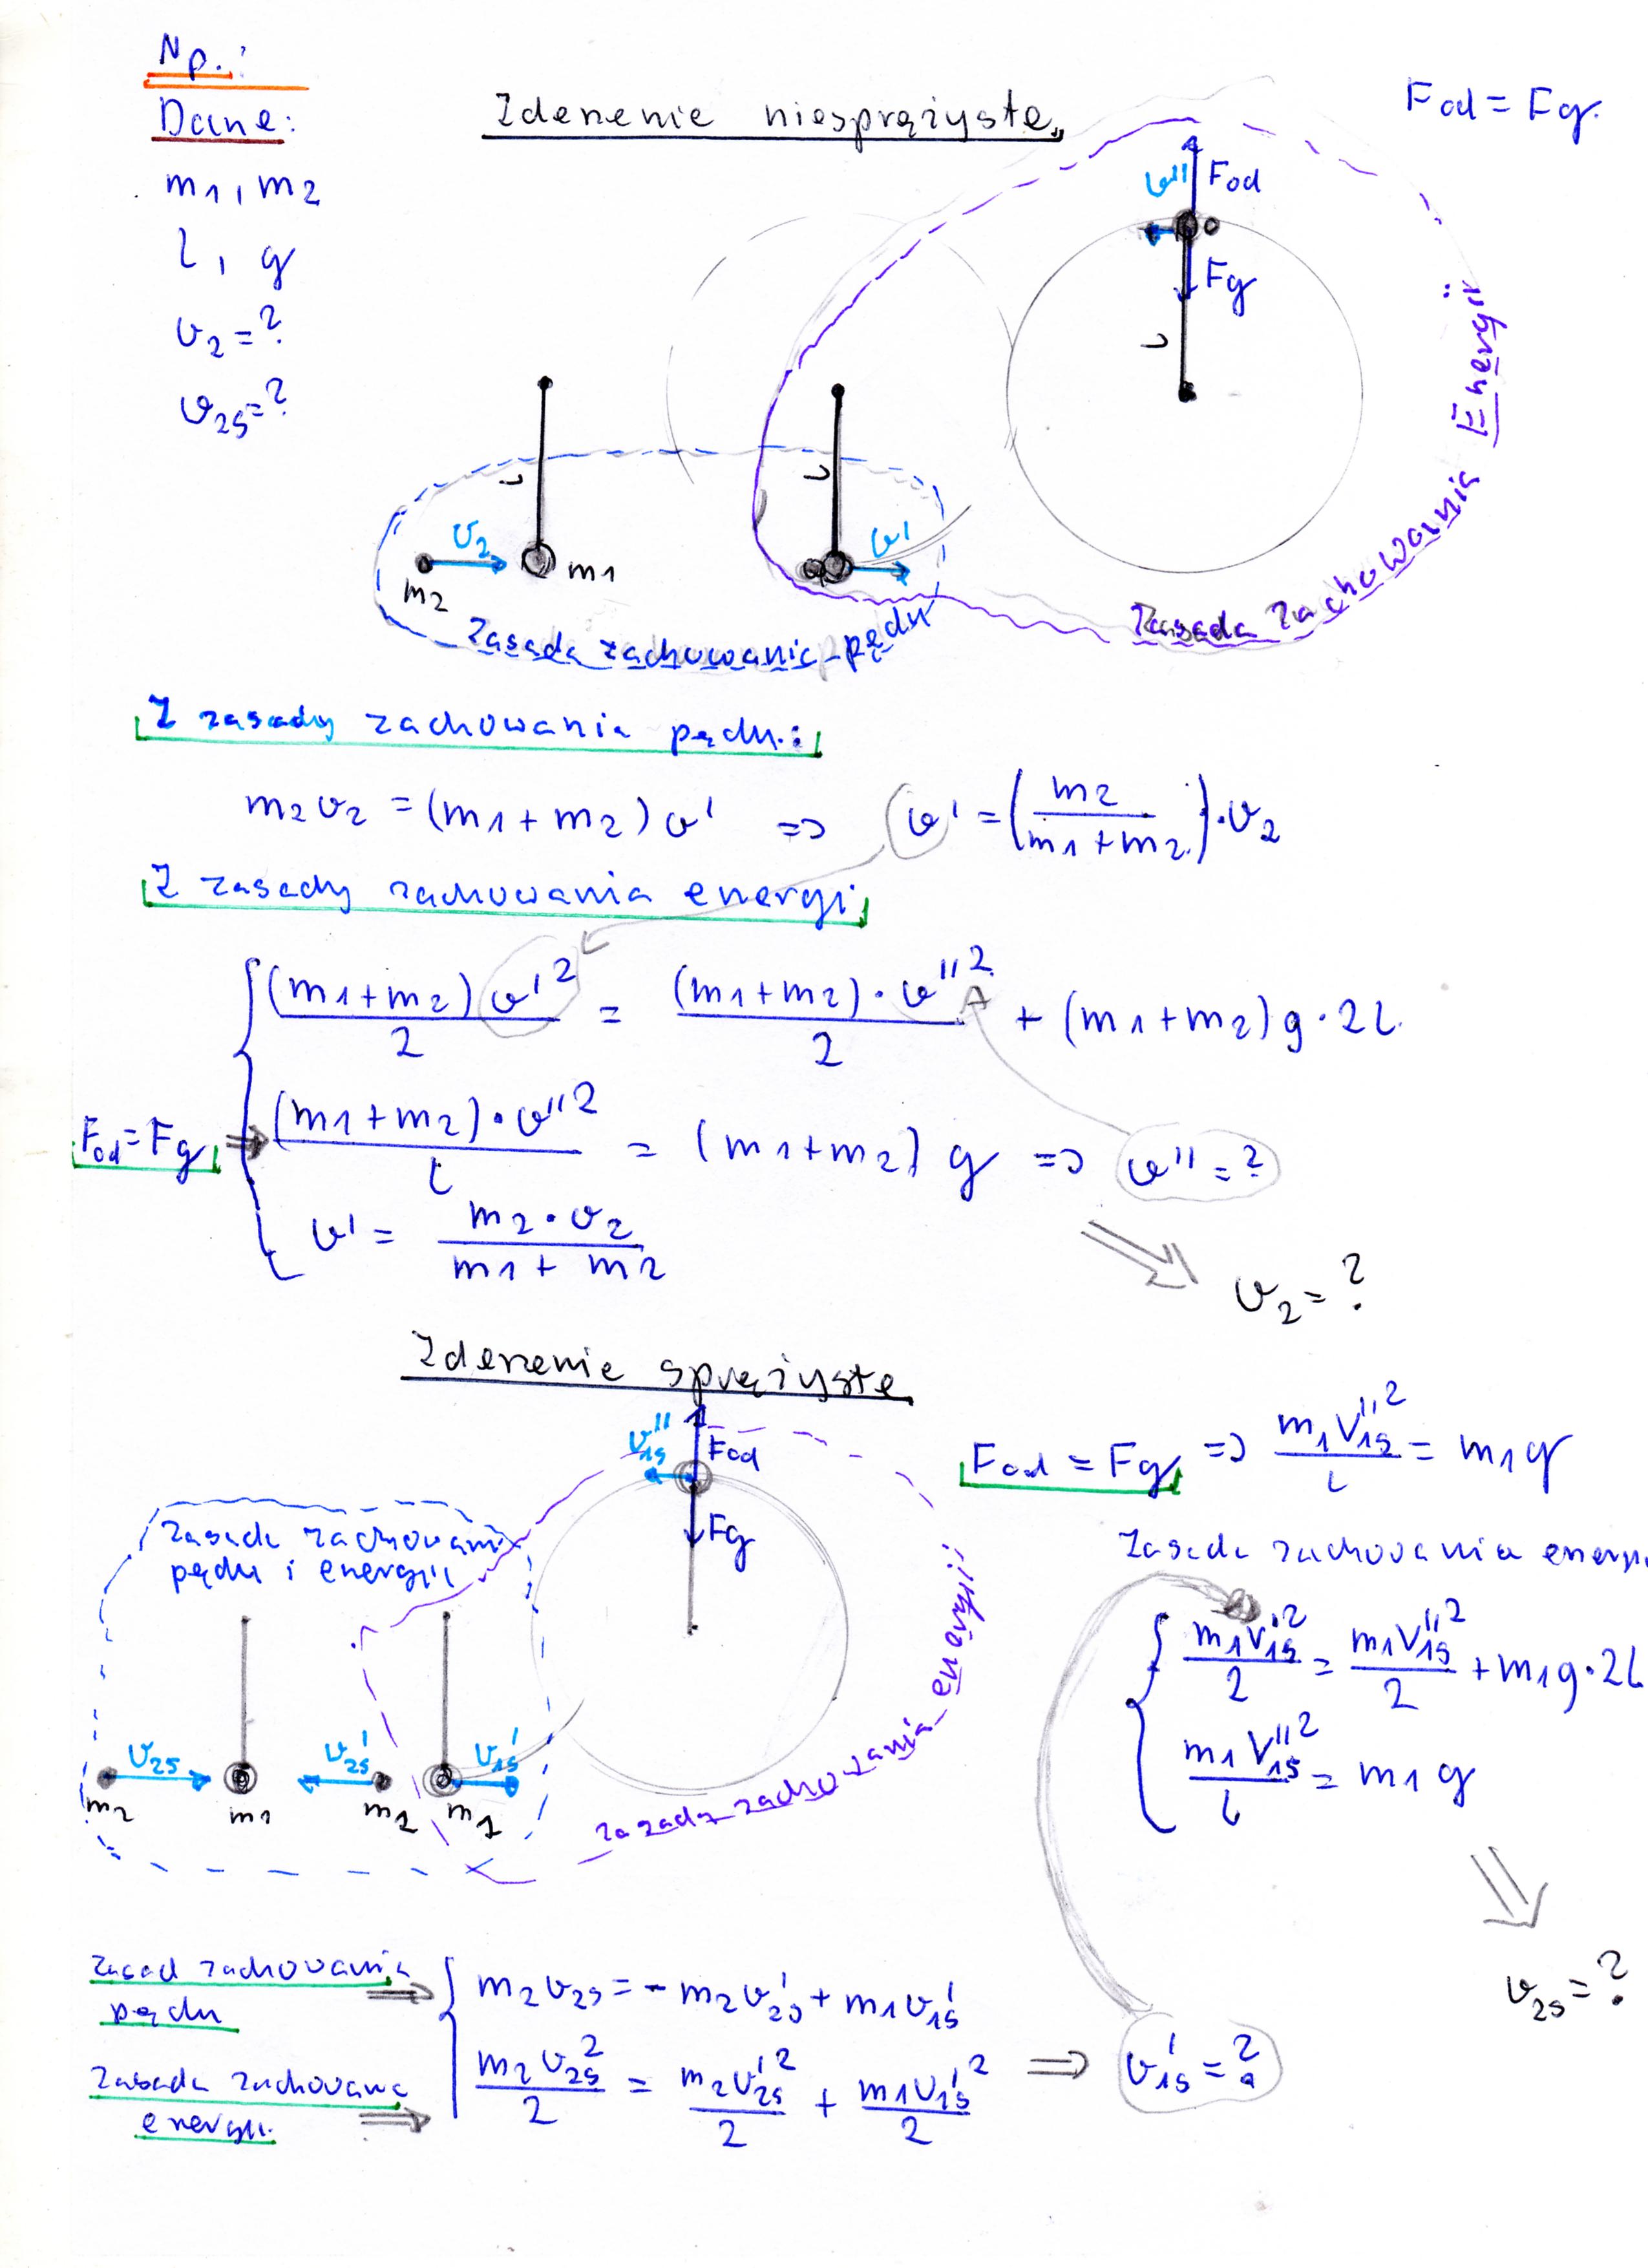 Np.:
Dane:
m1, m2
l, g
v2 = ?
v2s = ?
Zderzenie niesprężyste
Fod = Fg
v'' Fod
Fg
L
L
L
v2
m2
m1
v'
Zasada zachowania pędu
Zasada Zachowania Energii
Z zasady zachowania pędu:
m2 v2 = (m1 + m2) v' => v' = (m2 / (m1 + m2)) · v2
Z zasady zachowania energi
(m1 + m2) v'² / 2 = (m1 + m2) · v''² / 2 + (m1 + m2) g · 2L
Fod = Fg => (m1 + m2) · v''² / L = (m1 + m2) g => v'' = ?
v' = m2 · v2 / (m1 + m2)
v2 = ?
Zderzenie sprężyste
v1s'' Fod
Fg
Fod = Fg => m1 v1s''² / L = m1 g
Zasada zachowani
pędu i energii
zazada zachowania energii
v2s
m2
m1
v2s'
m2
v1s'
m1
Zasada zachowania energi
m1 v1s'² / 2 = m1 v1s''² / 2 + m1 g · 2L
m1 v1s''² / L = m1 g
v2s = ?
Zasad zachowania
pędu => m2 v2s = - m2 v2s' + m1 v1s'
Zasada zachowana
energii => m2 v2s² / 2 = m2 v2s'² / 2 + m1 v1s'² / 2 => v1s' = ?